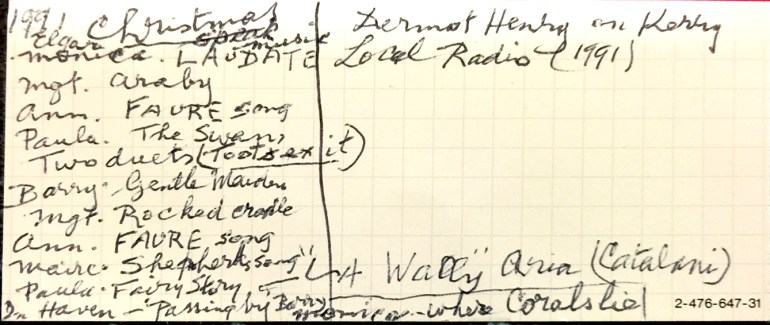 1991 Christmas music
Elgar
Monica. LAUDATE
Mgt. Araby
Ann. FAURE song
Paula. The Swan,
Two duets (Toots ex it)
Barry. Gentle Maiden
Mgt. Rocked cradle
Ann. FAURE song
Maire. Shepherds song
Paula. Fairy Story
In Haven - "Passing by" Barry
Dermot Henry on Kerry
Local Radio (1991)
"LA Wally" Aria (Catalani)
Monica - where Corals lie
2-476-647-31